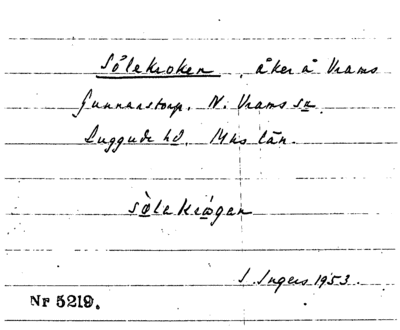 Sölekroken, åker å Vrams
Gunnarstorp. N. Vrams sn.
Luggude hd. M-hs län.
sö̀lekrågan
I. Ingers 1953.
Nr 5219.